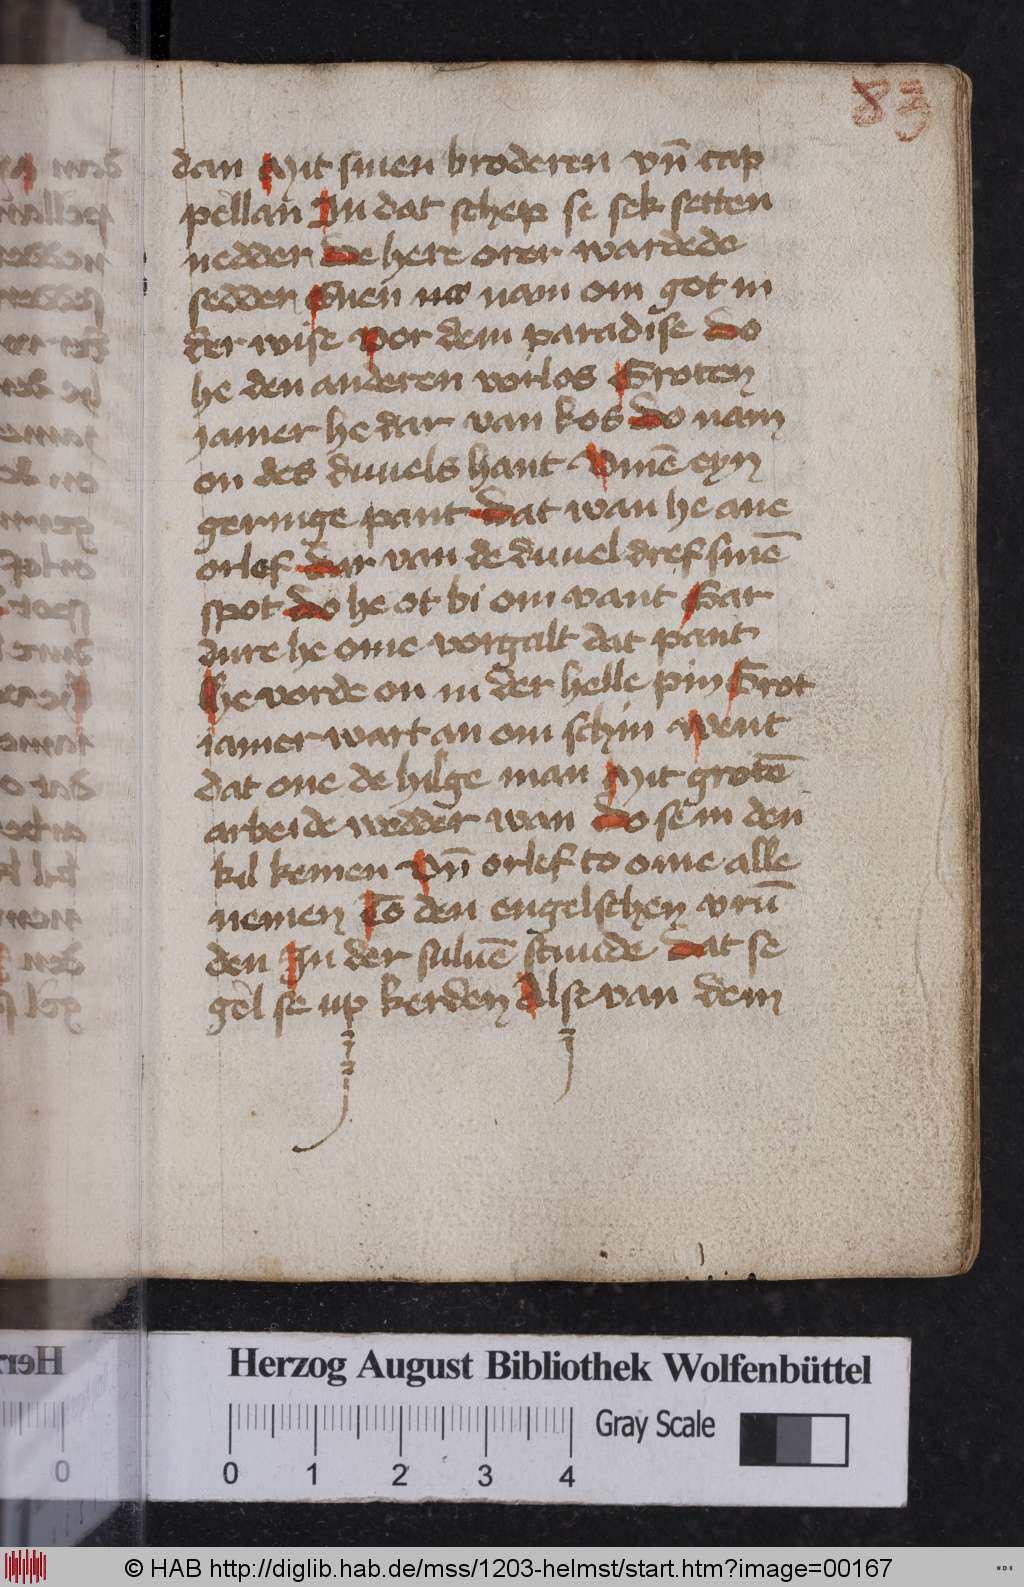 83
dan Mit sinen broderen vn̄ cap
pellan In dat schep se sek setten
nedder De here orer wardede
sedder Enen nam om got in
der wise Vor dem paradise Do
he den anderen vorlos Groten
jamer he dar van kos Do nam
on des duuels hant Vmē eyn
geringe pant Dat wan he ane
orlef Dar van de duuel dref sinē
spot Do he ot bi om vant Gar
dure he ome vorgalt dat pant
He vorde on in der helle pin Grot
iamer wart an om schin Went
dat one de hilge man Mit grotē
arbeide wedder wan Do se in den
kil kemen Vn̄ orlef to ome alle
nemen To den engelschen vrū
den In der suluē stunde Dat se
gel se up kerden Alse van dem
Herzog August Bibliothek Wolfenbüttel
Gray Scale
0 1 2 3 4
© HAB http://diglib.hab.de/mss/1203-helmst/start.htm?image=00167